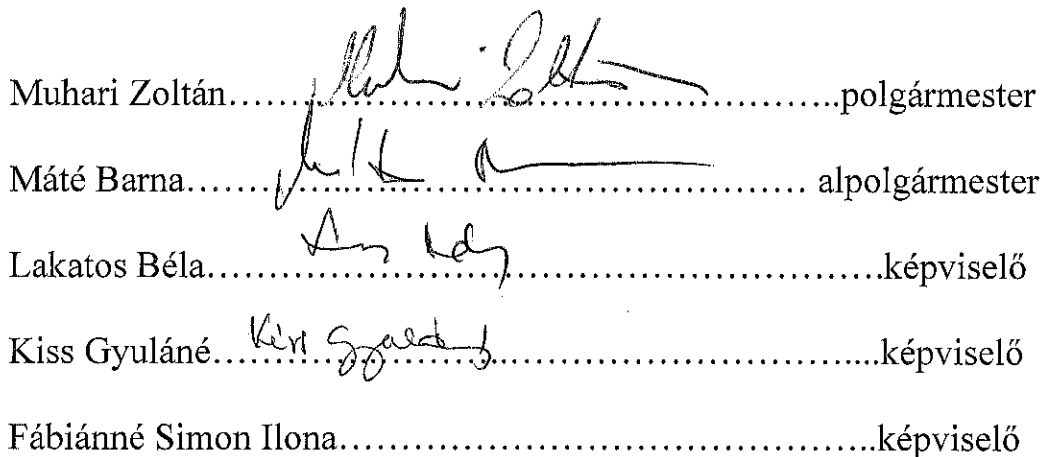 Muhari Zoltán……………………………………………..polgármester
Máté Barna…………………………………………… alpolgármester
Lakatos Béla……………………………………………….képviselő
Kiss Gyuláné………………………………………………...képviselő
Fábiánné Simon Ilona……………………………………..képviselő